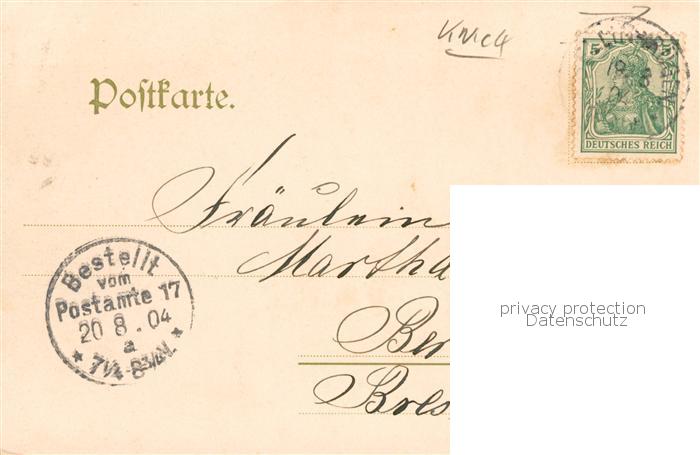 KMcK
Postkarte.
5 5
DEUTSCHES REICH
Fräulein
Martha
Ber
Bres
Bestellt
vom
Postamte 17
20 8. 04
a
privacy protection
Datenschutz